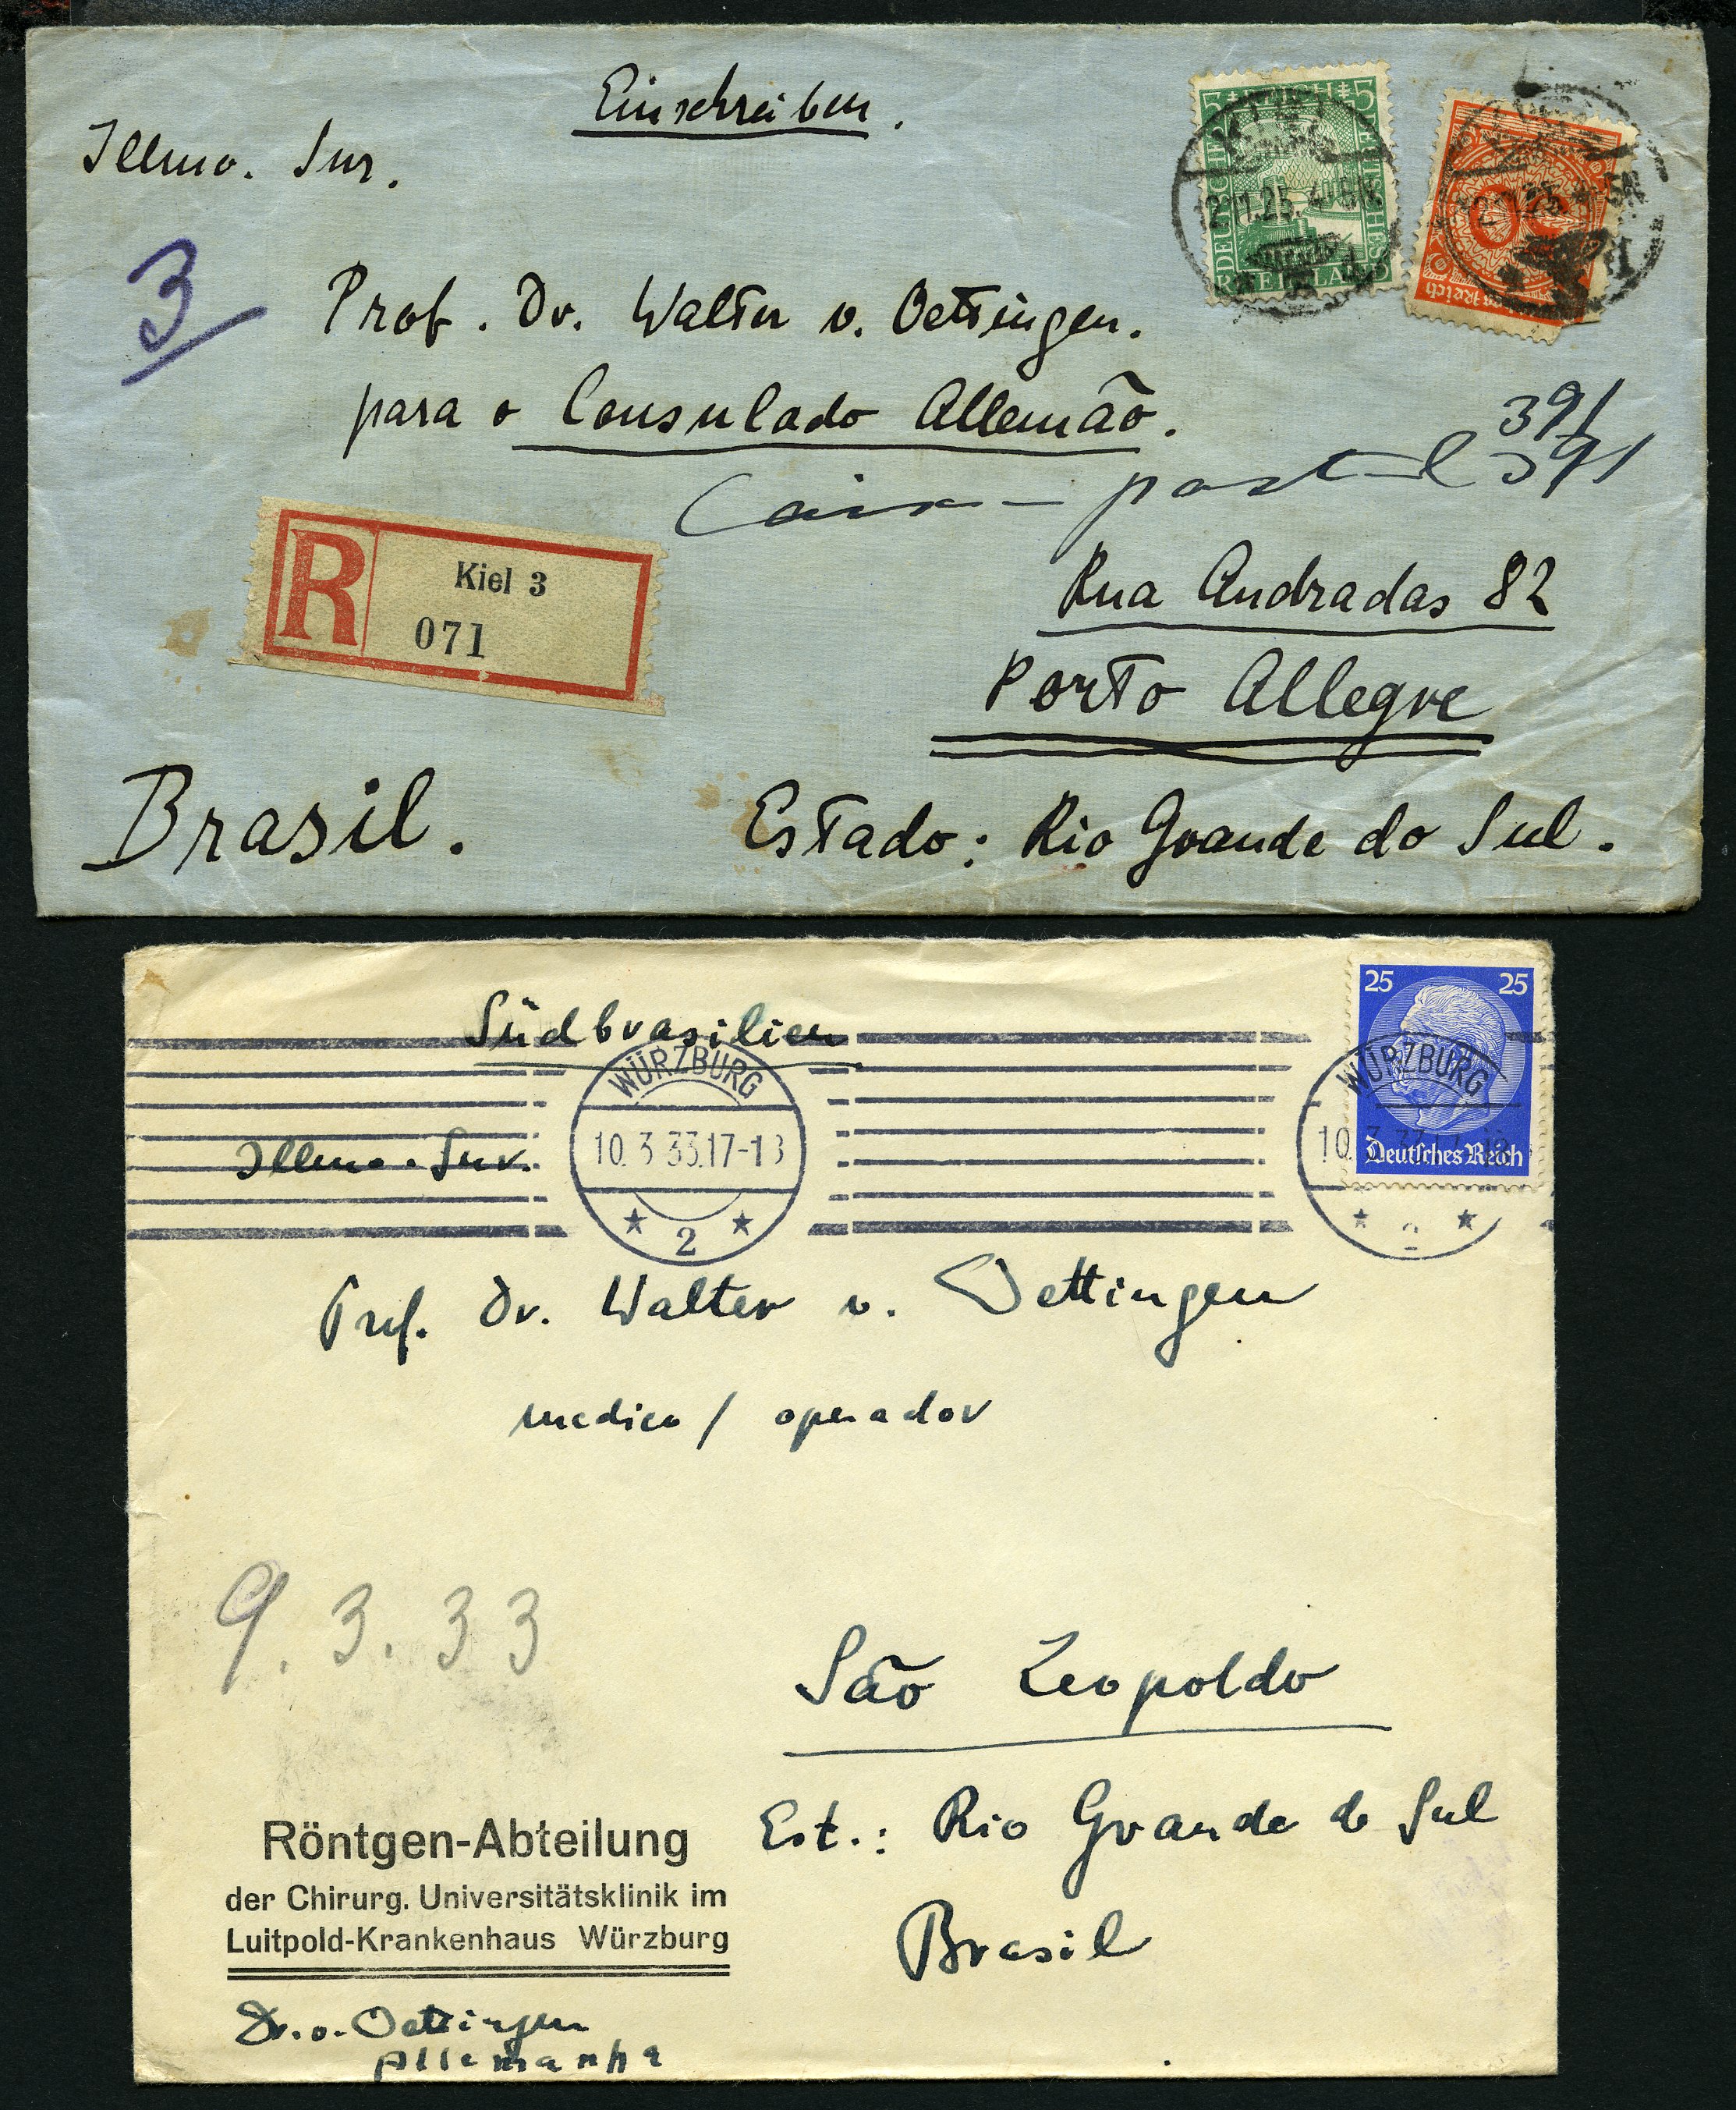 Einschreiben.
Illmo. Snr.
3
Prof. Dr. Walter v. Oettingen.
para o Consulado Allemão.
391
Caixa postal 391
R
Kiel 3
071
Rua Andradas 82
Porto Allegre
Brasil.
Estado: Rio Grande do Sul.
5 REICH 5
DEUTSCHES
RHEINLAND
50
Reich
Südbrasilien
25 25
Deutsches Reich
WÜRZBURG
10.3.33.17-18
2
WÜRZBURG
10.3.33.17-18
2
Illmo. Snr.
Prof. Dr. Walter v. Oettingen
medico / operador
9.3.33
São Leopoldo
Est.: Rio Grande do Sul
Brasil
Röntgen-Abteilung
der Chirurg. Universitätsklinik im
Luitpold-Krankenhaus Würzburg
Dr. v. Oettingen
Allemanha